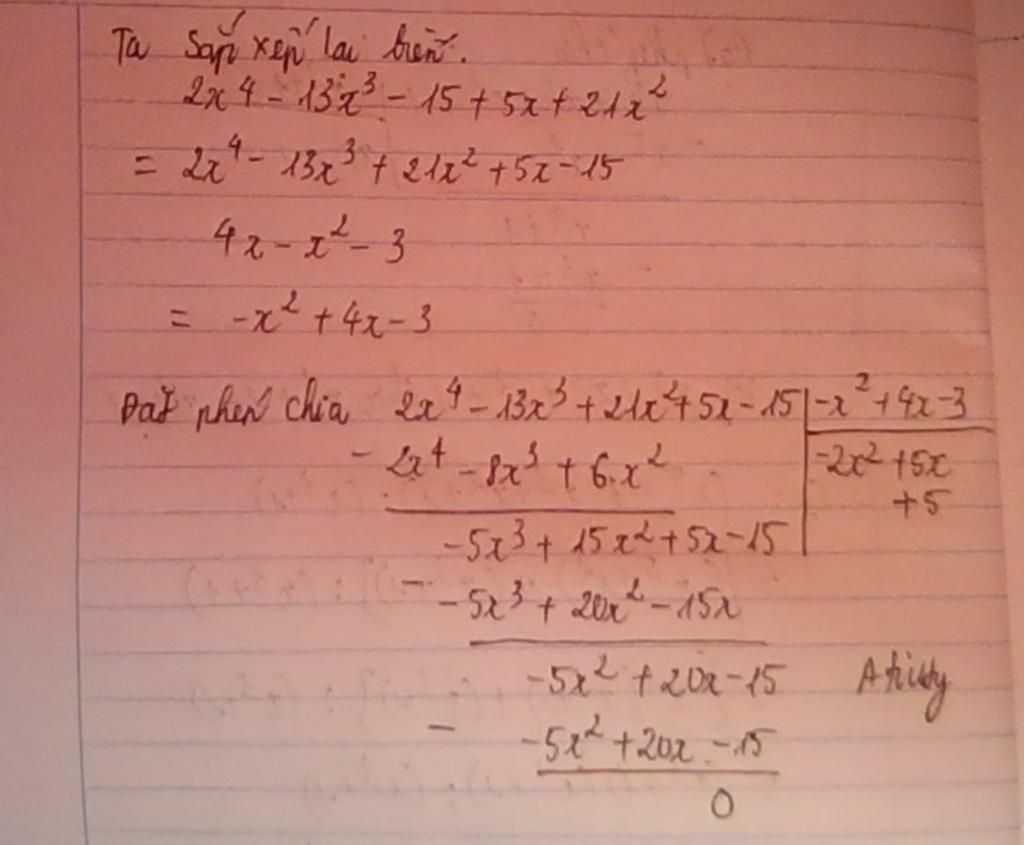 Ta sắp xếp lại biến.
2x⁴ - 13x³ - 15 + 5x + 21x²
= 2x⁴ - 13x³ + 21x² + 5x - 15
4x - x² - 3
= -x² + 4x - 3
Đặt phép chia 2x⁴ - 13x³ + 21x² + 5x - 15 | -x² + 4x - 3
- 2x⁴ - 8x³ + 6.x² | -2x² + 5x
+ 5
-5x³ + 15x² + 5x - 15
- -5x³ + 20x² - 15x
-5x² + 20x - 15
- -5x² + 20x - 15
0